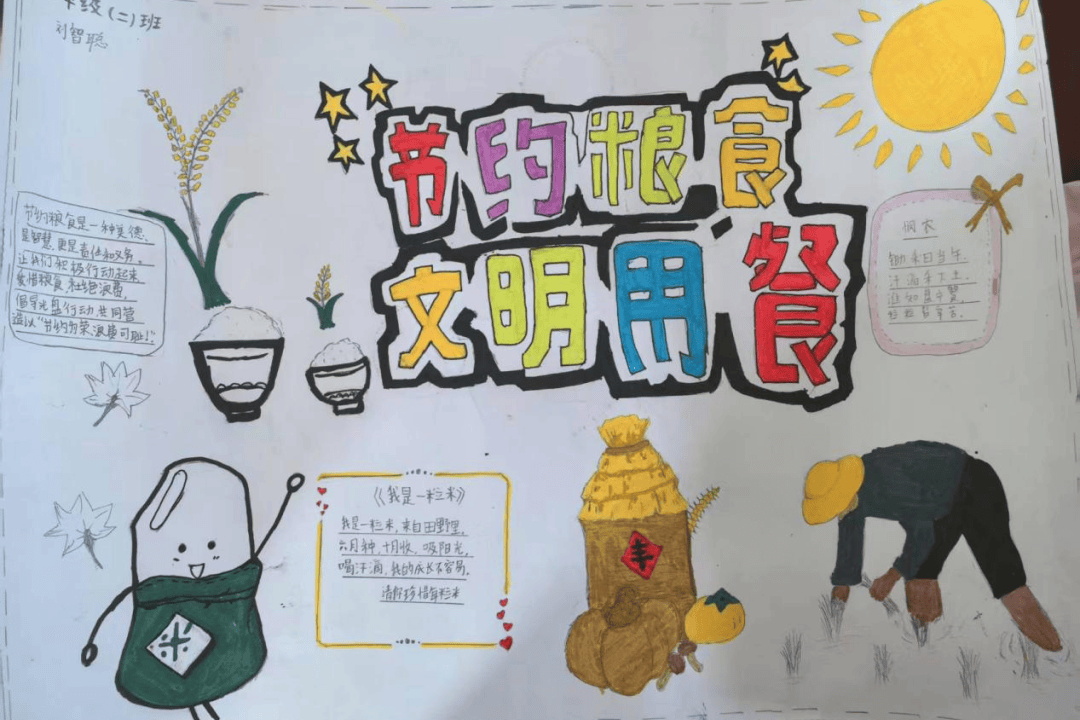 级（二）班
刘智聪
节约粮食
文明用餐
节约粮食是一种美德，
是智慧，更是责任和义务。
让我们积极行动起来，
爱惜粮食，杜绝浪费，
倡导光盘行动，共同营
造以“节约为荣，浪费可耻！”
悯农
锄禾日当午，
汗滴禾下土。
谁知盘中餐，
粒粒皆辛苦。
《我是一粒米》
我是一粒米，来自田野里，
六月种，十月收，吸阳光，
喝汗滴，我的成长不容易。
请你珍惜每粒米
丰
米